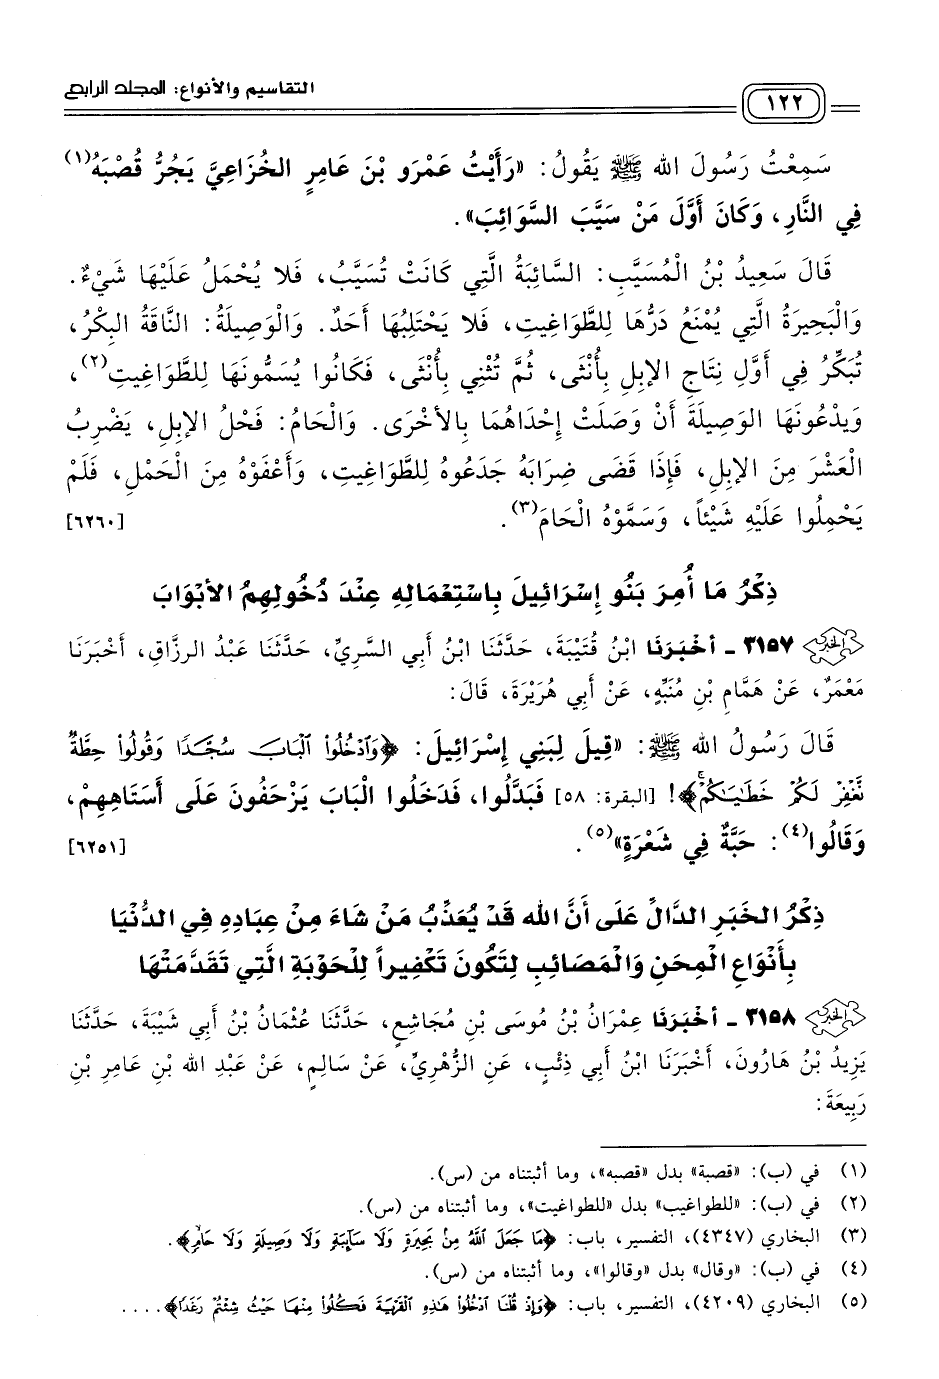 التقاسيم والأنواع: المجلد الرابع
١٢٢
سَمِعْتُ رَسُولَ الله ﷺ يَقُولُ: «رَأَيْتُ عَمْرَو بْنَ عَامِرٍ الخُزَاعِيَّ يَجُرُّ قُصْبَهُ(١)
فِي النَّارِ، وَكَانَ أَوَّلَ مَنْ سَيَّبَ السَّوَائِبَ».
قَالَ سَعِيدُ بْنُ الْمُسَيَّبِ: السَّائِبَةُ الَّتِي كَانَتْ تُسَيَّبُ، فَلا يُحْمَلُ عَلَيْهَا شَيْءٌ.
وَالْبَحِيرَةُ الَّتِي يُمْنَعُ دَرُّهَا لِلطَّوَاغِيتِ، فَلا يَحْتَلِبُهَا أَحَدٌ. وَالْوَصِيلَةُ: النَّاقَةُ البِكْرُ،
تُبَكِّرُ فِي أَوَّلِ نِتَاجِ الإبِلِ بِأُنْثَى، ثُمَّ تُثْنِي بِأُنْثَى، فَكَانُوا يُسَمُّونَهَا لِلطَّوَاغِيتِ(٢)،
وَيدْعُونَهَا الوَصِيلَةَ أَنْ وَصَلَتْ إِحْدَاهُمَا بِالأخْرَى. وَالْحَامُ: فَحْلُ الإبِلِ، يَضْرِبُ
الْعَشْرَ مِنَ الإبِلِ، فَإِذَا قَضَى ضِرَابَهُ جَدَعُوهُ لِلطَّوَاغِيتِ، وَأَعْفَوْهُ مِنَ الْحَمْلِ، فَلَمْ
يَحْمِلُوا عَلَيْهِ شَيْئاً، وَسَمَّوْهُ الْحَامَ(٣). [٦٢٦٠]
ذِكْرُ مَا أُمِرَ بَنُو إِسْرَائِيلَ بِاسْتِعْمَالِهِ عِنْدَ دُخُولِهِمُ الأبْوَابَ
الخبر ٣١٥٧ ـ أخْبَرَنَا ابْنُ قُتَيْبَةَ، حَدَّثَنَا ابْنُ أبِي السَّرِيِّ، حَدَّثَنَا عَبْدُ الرزَّاقِ، أخْبَرَنَا
مَعْمَرٌ، عَنْ هَمَّامِ بْنِ مُنَبِّهٍ، عَنْ أبِي هُرَيْرَةَ، قَالَ:
قَالَ رَسُولُ الله ﷺ: «قِيلَ لِبَنِي إِسْرَائِيلَ: ﴿وَٱدْخُلُواْ ٱلْبَابَ سُجَّدًا وَقُولُواْ حِطَّةٌ
نَّغْفِرْ لَكُمْ خَطَٰيَٰكُمْۚ﴾! [البقرة: ٥٨] فَبَدَّلُوا، فَدَخَلُوا الْبَابَ يَزْحَفُونَ عَلَى أَسْتَاهِهِمْ،
وَقَالُوا(٤): حَبَّةٌ فِي شَعْرَةٍ»(٥). [٦٢٥١]
ذِكْرُ الخَبَرِ الدَّالِّ عَلَى أَنَّ الله قَدْ يُعَذِّبُ مَنْ شَاءَ مِنْ عِبَادِهِ فِي الدُّنْيَا
بِأَنْوَاعِ الْمِحَنِ وَالْمَصَائِبِ لِتَكُونَ تَكْفِيراً لِلْحَوْبَةِ الَّتِي تَقَدَّمَتْهَا
الخبر ٣١٥٨ ـ أخْبَرَنَا عِمْرَانُ بْنُ مُوسَى بْنِ مُجَاشِعٍ، حَدَّثَنَا عُثْمَانُ بْنُ أَبِي شَيْبَةَ، حَدَّثَنَا
يَزِيدُ بْنُ هَارُونَ، أَخْبَرَنَا ابْنُ أبِي ذِئْبٍ، عَنِ الزُّهْرِيِّ، عَنْ سَالِمٍ، عَنْ عَبْدِ الله بْنِ عَامِرِ بْنِ
رَبِيعَةَ:
(١) في (ب): «قصبة» بدل «قصبه»، وما أثبتناه من (س).
(٢) في (ب): «للطواغيب» بدل «للطواغيت»، وما أثبتناه من (س).
(٣) البخاري (٤٣٤٧)، التفسير، باب: ﴿مَا جَعَلَ ٱللَّهُ مِنۢ بَحِيرَةٍ وَلَا سَآئِبَةٍ وَلَا وَصِيلَةٍ وَلَا حَامٍ﴾.
(٤) في (ب): «وقال» بدل «وقالوا»، وما أثبتناه من (س).
(٥) البخاري (٤٢٠٩)، التفسير، باب: ﴿وَإِذْ قُلْنَا ٱدْخُلُواْ هَٰذِهِ ٱلْقَرْيَةَ فَكُلُواْ مِنْهَا حَيْثُ شِئْتُمْ رَغَدًا﴾....